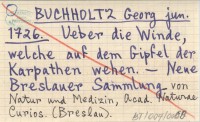 BUCHHOLTZ Georg jun.
1726. Ueber die Winde,
welche auf dem Gipfel der
Karpathen wehen. — Neue
Breslauer Sammlung von
Natur und Medizin, Acad. Naturae
Curios. (Breslau).